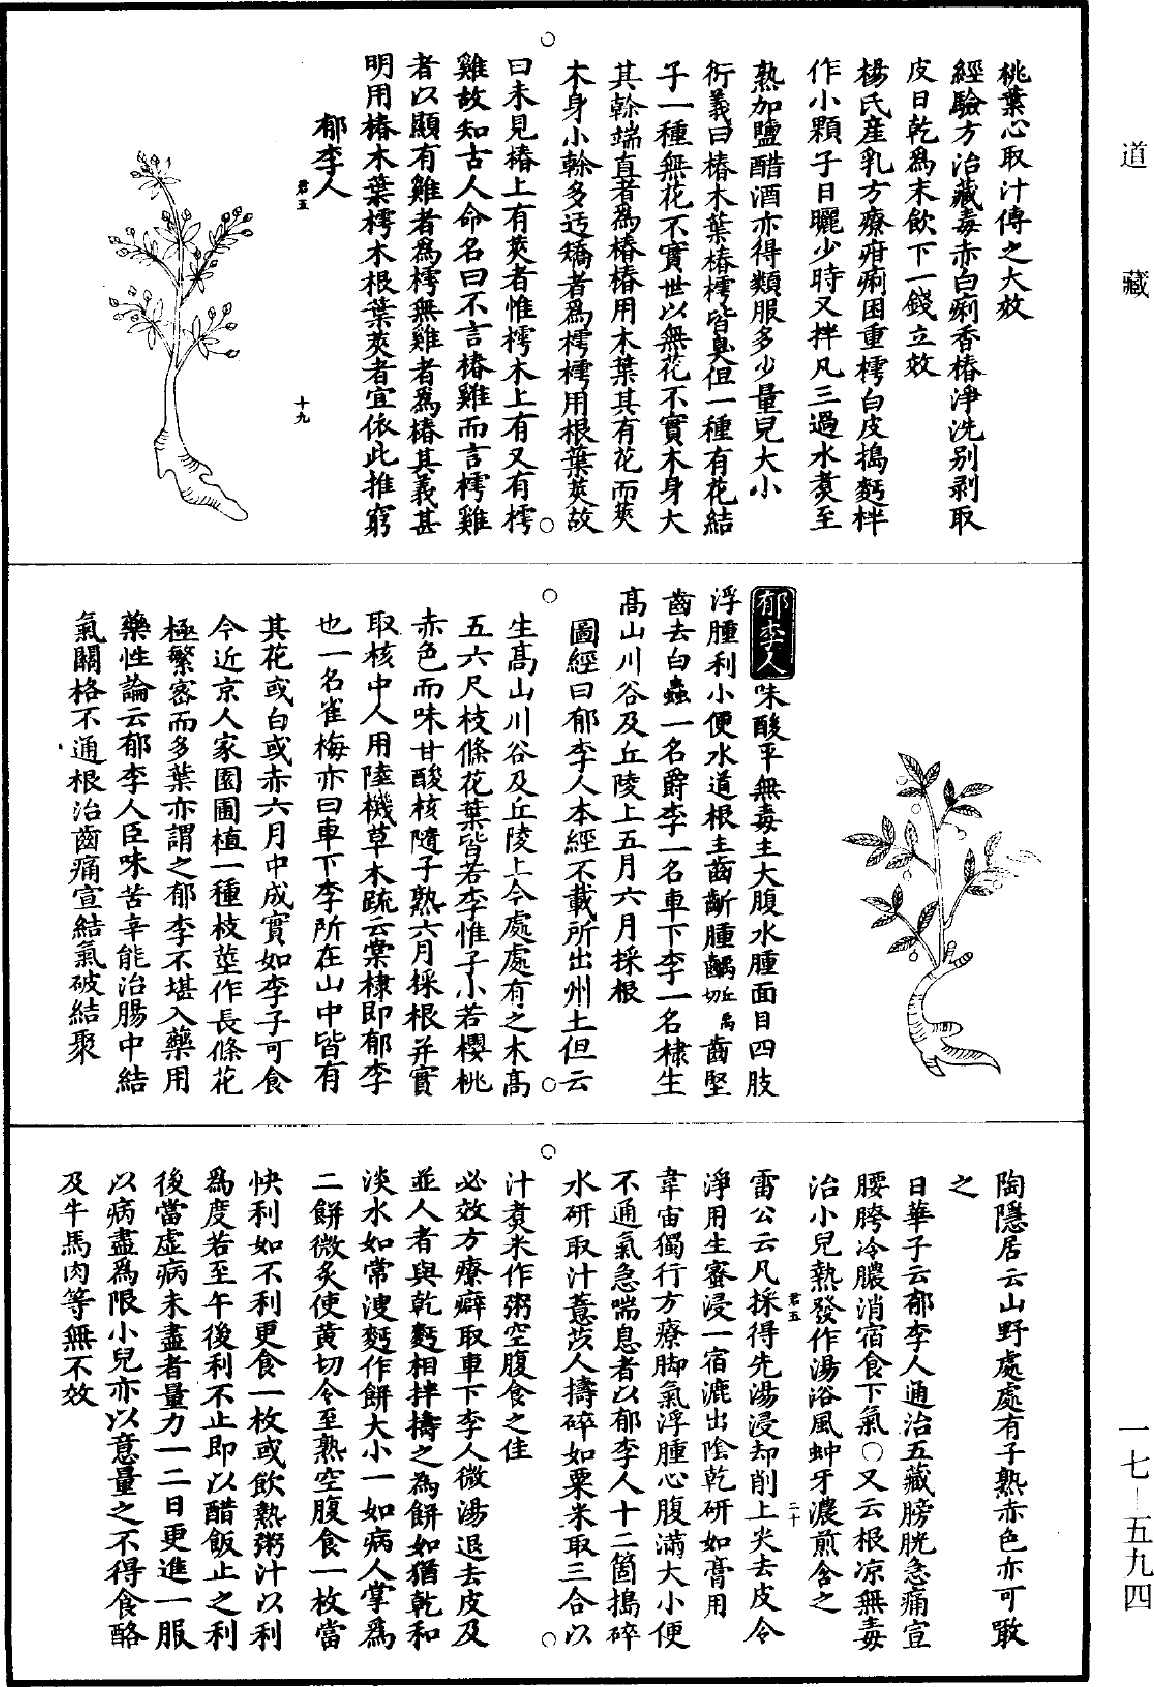 道藏
桃葉心取汁傅之大效
經驗方治藏毒赤白痢香椿淨洗別剥取
皮日乾爲末飲下一錢立效
楊氏産乳方療疳痢困重樗白皮搗麪拌
作小顆子日曬少時又拌凡三過水煑至
熟加鹽醋酒亦得類服多少量兒大小
衍義曰椿木葉椿樗皆臭但一種有花結
子一種無花不實世以無花不實木身大
其榦端直者爲椿椿用木葉其有花而莢
木身小榦多迃矯者爲樗樗用根葉莢故
曰未見椿上有莢者惟樗木上有又有樗
雞故知古人命名曰不言椿雞而言樗雞
者以顯有雞者爲樗無雞者爲椿其義甚
明用椿木葉樗木根葉莢者宜依此推窮
郁李人
君五
十九
郁李人味酸平無毒主大腹水腫面目四肢
浮腫利小便水道根主齒齗腫齲丘禹切齒堅
齒去白蟲一名爵李一名車下李一名棣生
高山川谷及丘陵上五月六月採根
圖經曰郁李人本經不載所出州土但云
生高山川谷及丘陵上今處處有之木高
五六尺枝條花葉皆若李惟子小若櫻桃
赤色而味甘酸核隨子熟六月採根并實
取核中人用陸機草木疏云棠棣即郁李
也一名雀梅亦曰車下李所在山中皆有
其花或白或赤六月中成實如李子可食
今近京人家園圃植一種枝莖作長條花
極繁密而多葉亦謂之郁李不堪入藥用
藥性論云郁李人臣味苦辛能治腸中結
氣關格不通根治齒痛宣結氣破結聚
陶隱居云山野處處有子熟赤色亦可噉
之
日華子云郁李人通治五藏膀胱急痛宣
腰胯冷膿消宿食下氣〇又云根凉無毒
治小兒熱發作湯浴風蚛牙濃煎含之
君五
二十
雷公云凡採得先湯浸却削上尖去皮令
淨用生蜜浸一宿漉出陰乾研如膏用
韋宙獨行方療脚氣浮腫心腹滿大小便
不通氣急喘息者以郁李人十二箇搗碎
水研取汁薏苡人擣碎如粟米取三合以
汁煑米作粥空腹食之佳
必效方療癖取車下李人微湯退去皮及
並人者與乾麪相拌擣之為餅如猶乾和
淡水如常溲麪作餅大小一如病人掌爲
二餅微炙使黄切令至熟空腹食一枚當
快利如不利更食一枚或飲熱粥汁以利
爲度若至午後利不止即以醋飯止之利
後當虛病未盡者量力一二日更進一服
以病盡爲限小兒亦以意量之不得食酪
及牛馬肉等無不效
一七—五九四